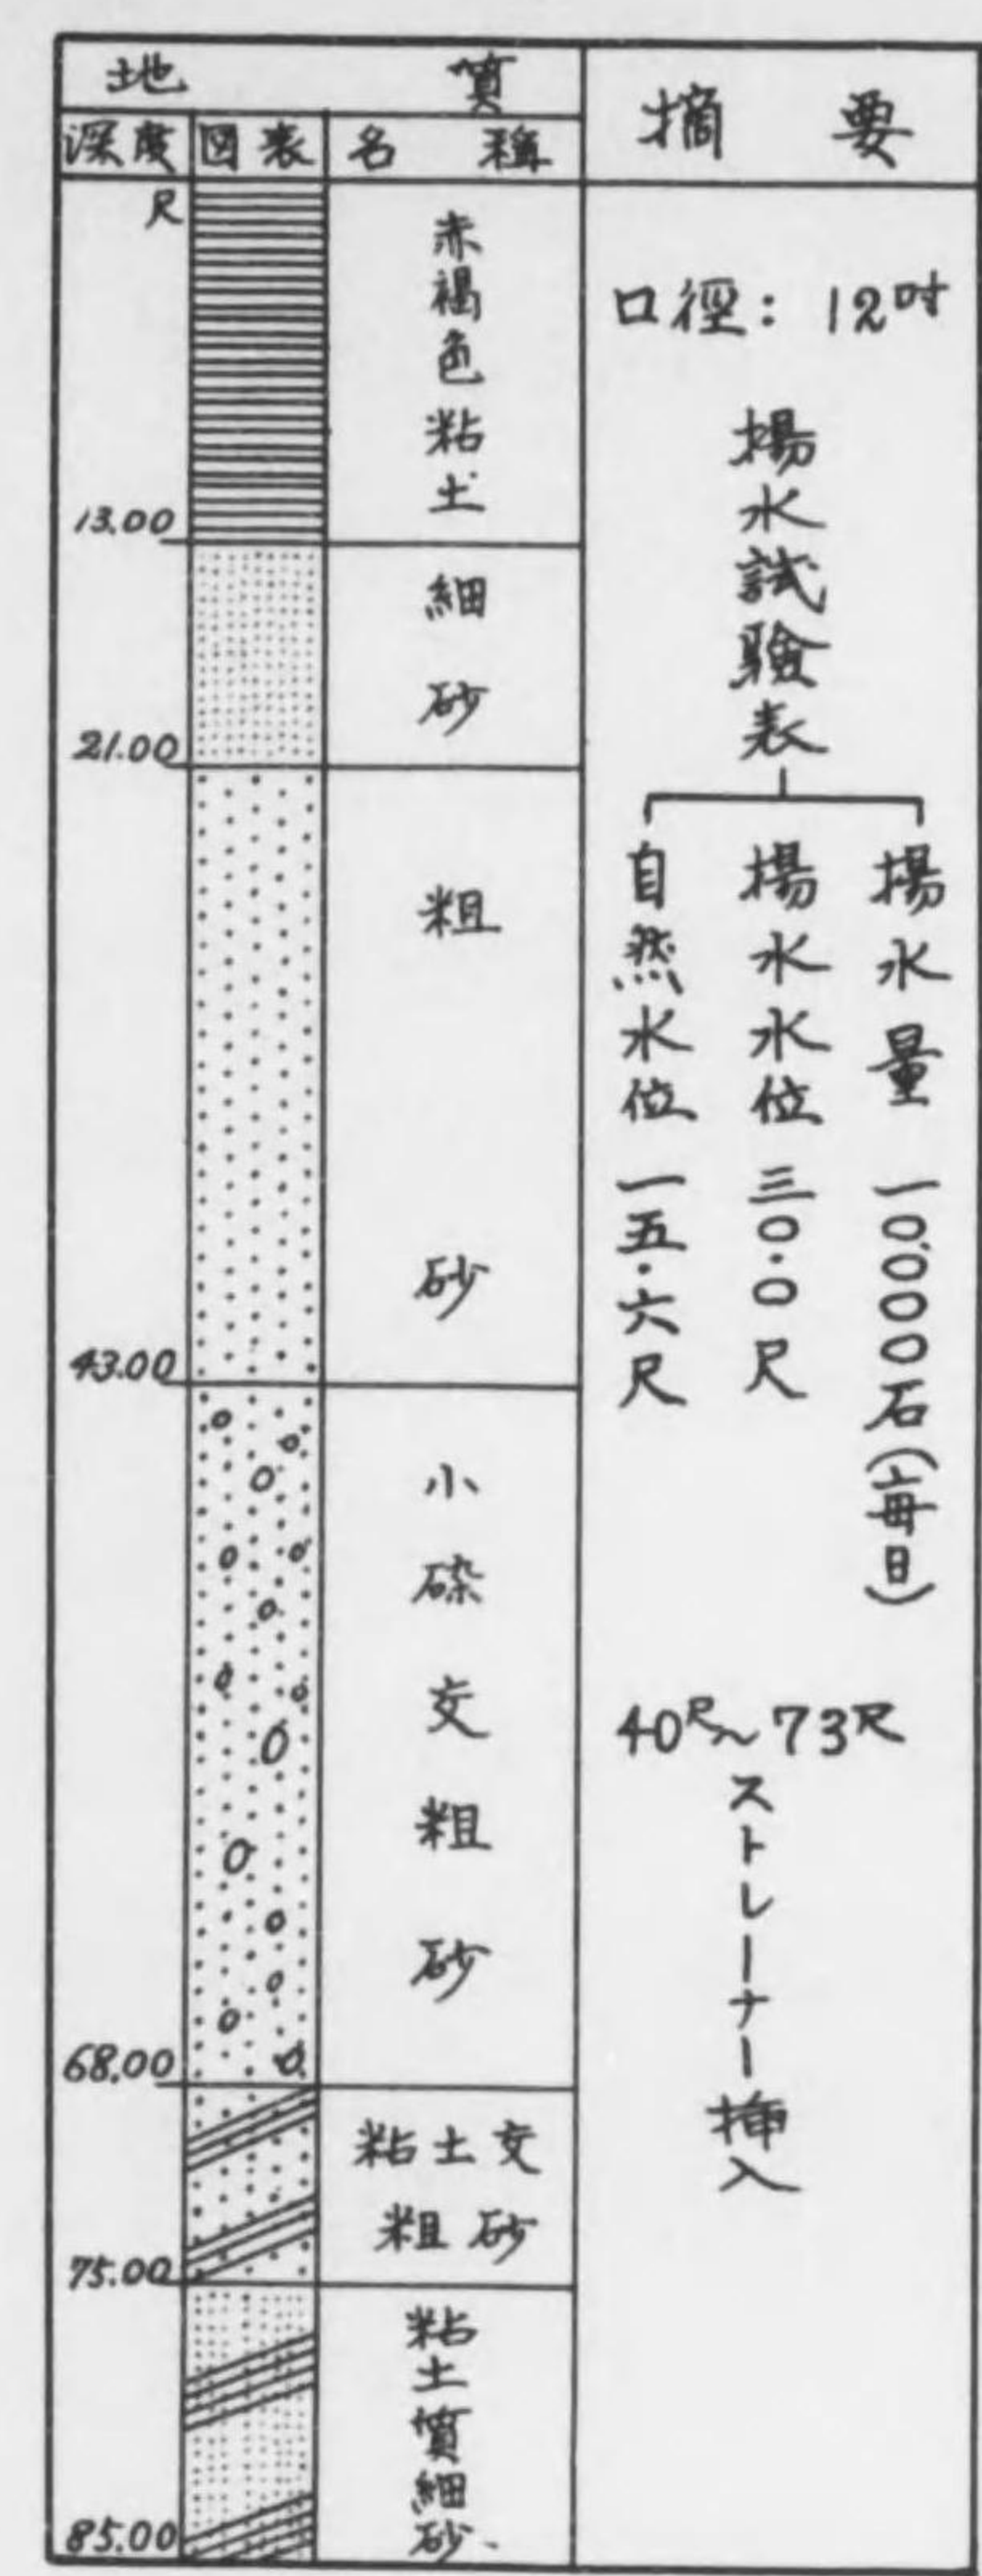 地質
摘要
深度
図表
名稱
尺
赤褐色粘土
13.00
細砂
21.00
粗砂
43.00
小礫交粗砂
68.00
粘土交
粗砂
75.00
粘土質細砂
85.00
口徑：12吋
揚水試験表
揚水量 一〇,〇〇〇石(毎日)
揚水水位 三〇・〇尺
自然水位 一五・六尺
40尺～73尺
ストレーナー挿入